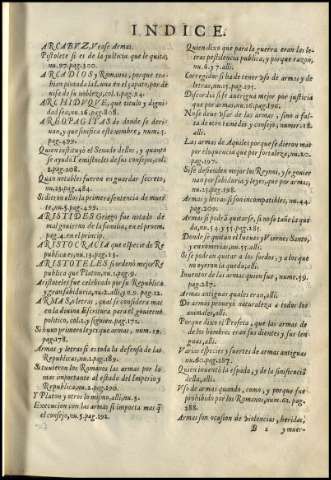 INDICE.
ARCABVZ, Vease Armas.
Pistolete si es de la justicia que le quita,
nu. 97. pag. 200.
ARCADIOS, y Romanos, porque tra-
hian pintada la Luna en el çapato, por de
uisa de su nobleza, col. 1. pag. 24.
ARCHIDVQVE, que titulo y digni-
dad sea, nu. 26. pag. 308.
AREOPAGITAS de donde se deri-
uan, y que significa este nombre, num. 3.
pag. 499.
Quien instituyò el Senado dellos, y quanto
se ayudò Temistocles de sus consejos, col.
2. pag. 208.
Quan notables fueron en guardar secreto,
nu. 28. pag. 484.
Si dieron ellos la primera sentencia de muer
te, nu. 5. pag. 499.
ARISTIDES Griego fue notado de
mal gouierno de la familia, en el proem.
pag. 4. en el princip.
ARISTOCRACIA que especie de Re-
publica es, nu. 13. pag. 13.
ARISTOTELES si ordenò mejor Re
publica que Platon, nu. 1. pag. 9.
Aristoteles fue celebrado por su Republica
y gran sabiduria, nu. 2. alli, & nu. 9. pag. 12.
ARMAS, y letras, qual se considera mas
en la diuina Escritura para el gouierno
politico, col. 2. y siguien. pag. 171.
Si huuo primero leyes que armas, num. 19.
pag. 178.
Armas y letras si es toda la defensa de las
Republicas, nu. 2. pag. 189.
Si tuuieron los Romanos las armas por lo
mas importante al estado del Imperio y
Republica, nu. 2. pag. 190.
Y Platon y otros lo mismo, alli, nu. 3.
Execucion con las armas si importa mas q̃
el consejo, nu. 5. pag. 192.
Quien dixo que para la guerra eran las le-
tras pestilencia publica, y por que razon,
nu. 6. y 7. alli.
Corregidor si ha de tener vso de armas y de
letras, nu. 15. pag. 195.
Discordia si se auerigua mejor por justicia
que por armas, nu. 16. pag. 196.
No se deue vsar de las armas, sino a fal-
ta de todo remedio y consejo, numer. 18.
alli.
Las armas de Aquiles porque se dieron mas
por eloquencia que por fortaleza, nu. 20.
pag. 197.
Si se defienden mejor los Reynos, y se gouier
nan por sabiduria y leyes, que por armas,
nu. 23. pag. 198.
Armas y letras si son incompatibles, nu. 44.
pag. 209.
Armas si podrà quitarse, si no se tañe la que-
da, nu. 54. y 55. pag. 181.
Donde se quitan el Iueues y Viernes Santo,
y en entierros, nu. 55. alli.
Si se podran quitar a los sordos, y a los que
no oyeron la queda, alli.
Inuentor de las armas quien fue, nume. 59.
pag. 187.
Armas antiguas quales eran, alli.
De armas proueyò naturaleza a todos los
animales, alli.
Porque dixo el Profeta, que las armas de
los hombres eran sus dientes y sus len-
guas, alli.
Varias especies y suertes de armas antiguas
nu. 60. pag. 287.
Quien inuentò la espada, y de la significaciõ
della, alli.
Vso de armas quando, como, y porque fue
prohibido por los Romanos, num. 62. pag.
288.
Armas son ocasion de violencias, heridas,
B 2 y muer-